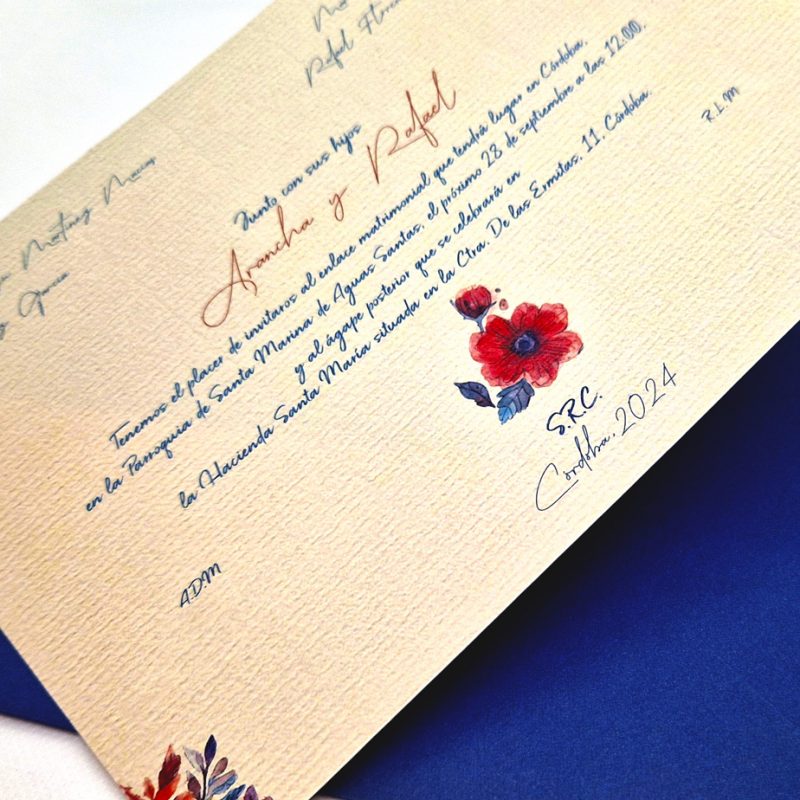 Rafael
Martínez
García
Junto con sus hijos
Arancha y Rafael
Tenemos el placer de invitaros al enlace matrimonial que tendrá lugar en Córdoba,
en la Parroquia de Santa Marina de Aguas Santas, el próximo 28 de septiembre a las 12:00.
y al ágape posterior que se celebrará en
la Hacienda Santa María situada en la Ctra. De las Ermitas, 11, Córdoba.
A.D.M
R.L.M
S.R.C.
Córdoba, 2024